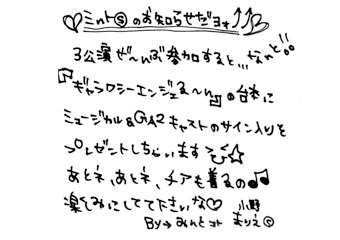 ♡ミントⓈのお知らせだヨォ⤴⤴♡
3公演ぜ〜んぶ参加すると…なんと!!
『ギャラクシーエンジェる〜ん』の台本に
ミュージカル&GA2キャストのサイン入りを
プレゼントしちゃいます☆
あとネ、あとネ、チアも着るの♪♪
楽しみにしてて下さいな♡
By→みんとコト 小野まりえⓈ